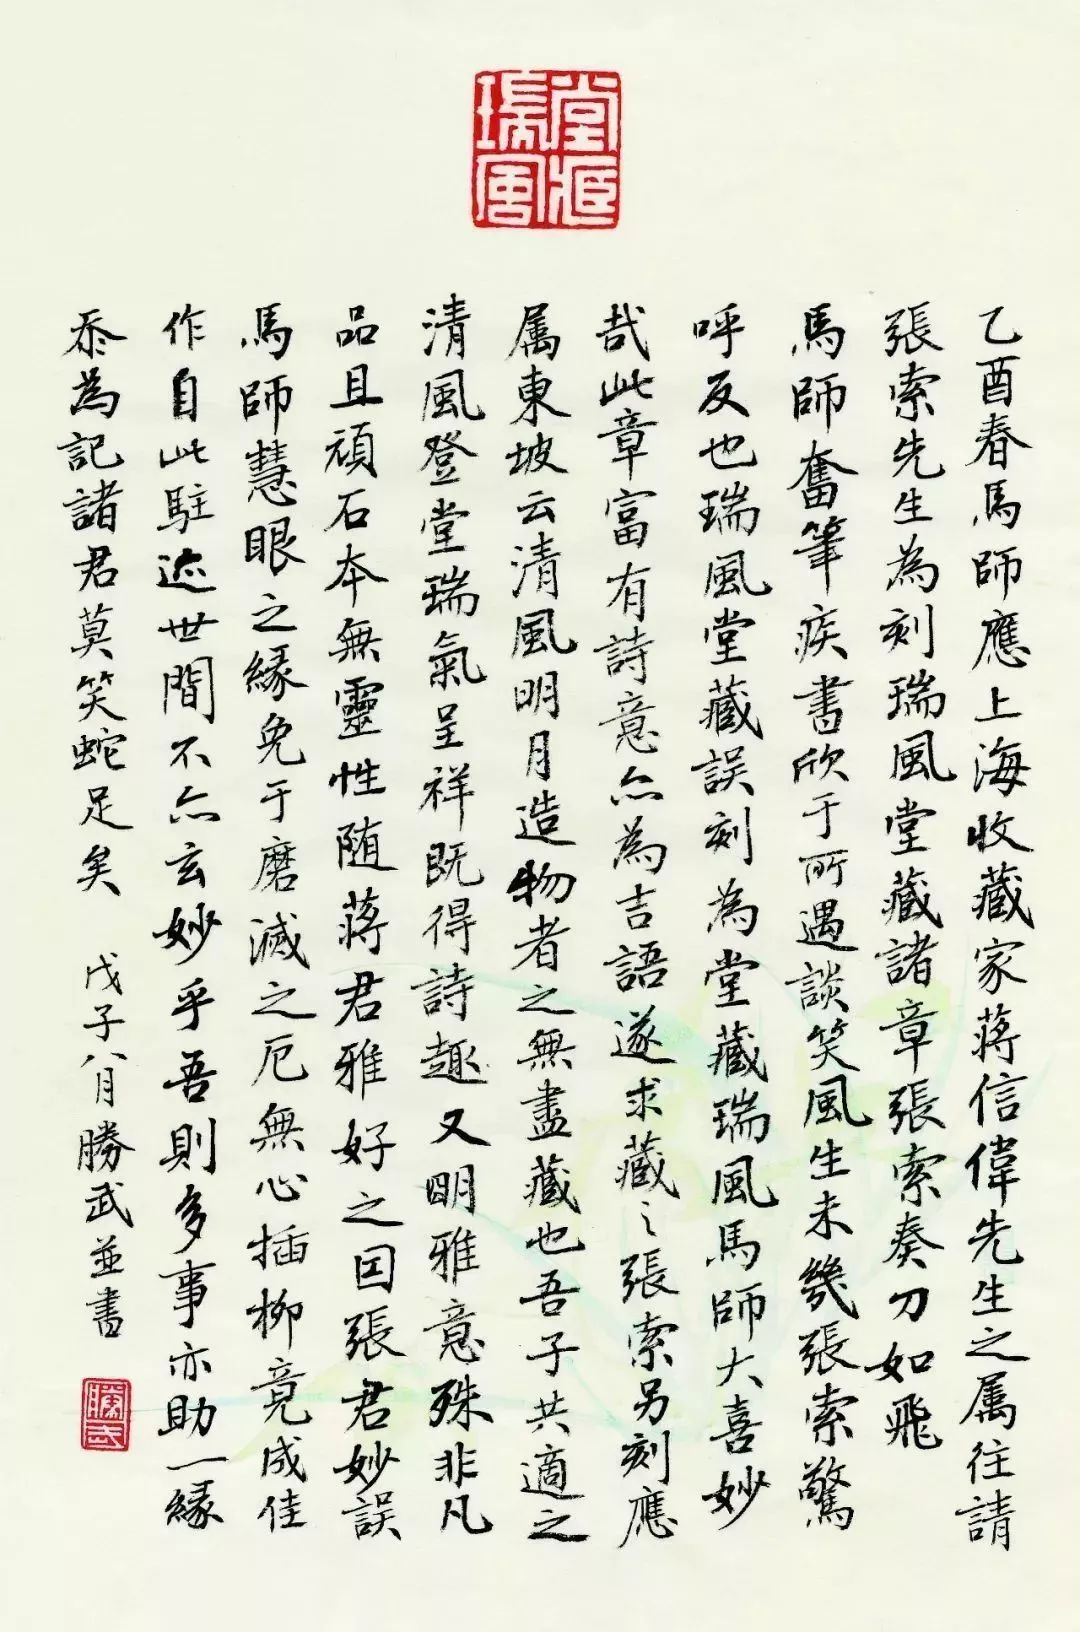 堂藏瑞風
乙酉春馬師應上海收藏家蔣信偉先生之属往請
張索先生為刻瑞風堂藏諸章張索奏刀如飛
馬師奮筆疾書欣于所遇談笑風生未幾張索驚
呼反也瑞風堂藏誤刻為堂藏瑞風馬師大喜妙
哉此章富有詩意亦為吉語遂求藏之張索另刻應
属東坡云清風明月造物者之無盡藏也吾子共適之
清風登堂瑞氣呈祥既得詩趣又明雅意殊非凡
品且頑石本無靈性随蔣君雅好之因張君妙誤
馬師慧眼之緣免于磨滅之厄無心插柳竟成佳
作自此駐迹世間不亦玄妙乎吾則多事亦助一緣
忝為記諸君莫笑蛇足矣 戊子八月勝武並書
勝武